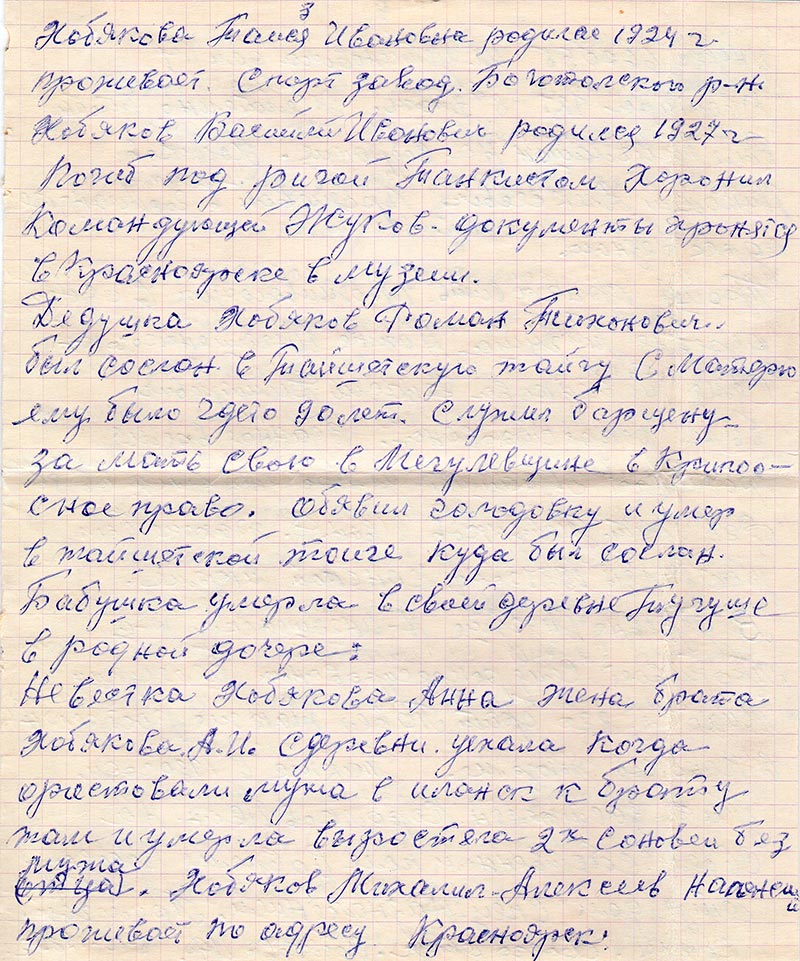 3
Хобякова Таися Ивановна родилас 1924 г
проживает. Спорт завод. Боготолского р-н
Хобяков Василий Иванович родился 1927 г
Погиб под ригой Танкистом Хоронил
Командующей Жуков. документы хронятся
в Красноярске в музеи.
Дедушка Хобяков Роман Тихонович.
был сослан в Тайшетскую тайгу С Матерю
ему было где то 90 лет. служил баржену
за мать свою в Мегулевщине в Крипос-
сное право. обявил голодовку и умер
в тайшетской тоиге куда был сослан.
Бабушка умерла в своей деревне Тугуше
в родной дочере:
Невестка Хобякова Анна жена брата
Хобякова А.И. с деревни. уехала когда
орестовали мужа в иланск к брату
там и умерла вызростела 2х соновей без
мужа
(отца). Хобяков Михалил-Алексеев
проживает по адресу Красноярск: